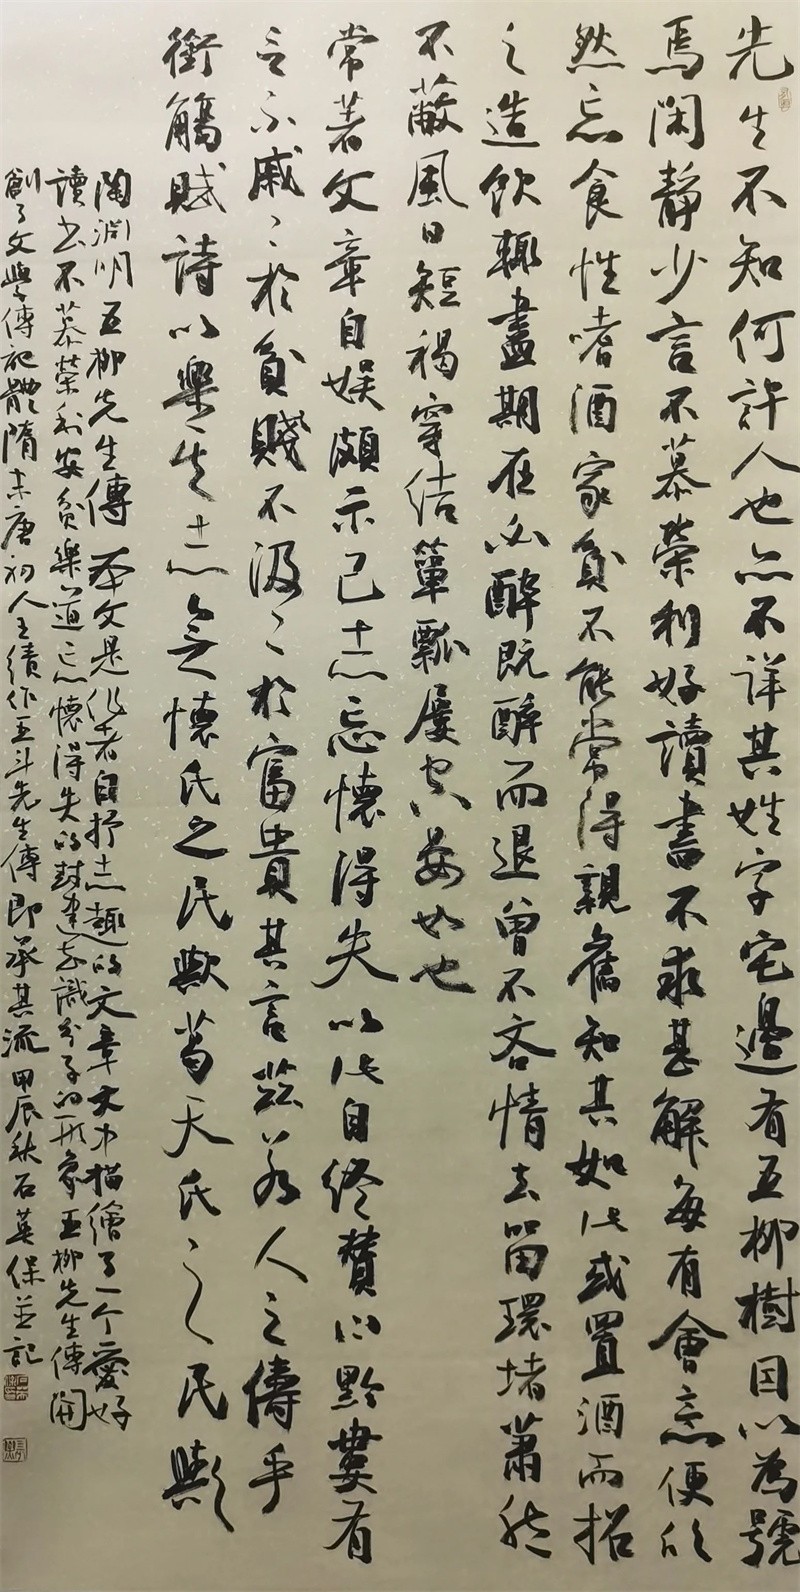 先生不知何許人也亦不詳其姓字宅邊有五柳樹因以為號
焉閑靜少言不慕榮利好讀書不求甚解每有會意便欣
然忘食性嗜酒家貧不能常得親舊知其如此或置酒而招
之造飲輒盡期在必醉既醉而退曾不吝情去留環堵蕭然
不蔽風日短褐穿結簞瓢屢空晏如也
常著文章自娛頗示己志忘懷得失以此自終贊曰黔婁有
言不戚〻於貧賤不汲〻於富貴其言茲若人之儔乎
銜觴賦詩以樂其志無懷氏之民歟葛天氏之民歟
陶淵明五柳先生傳 本文是作者自抒志趣的文章文中描繪了一个愛好
讀書不慕榮利安貧樂道忘懷得失的封建知識分子的形象五柳先生傳開
創了文學傳記體隋末唐初人王績作五斗先生傳即承其流甲辰秋石英保並記